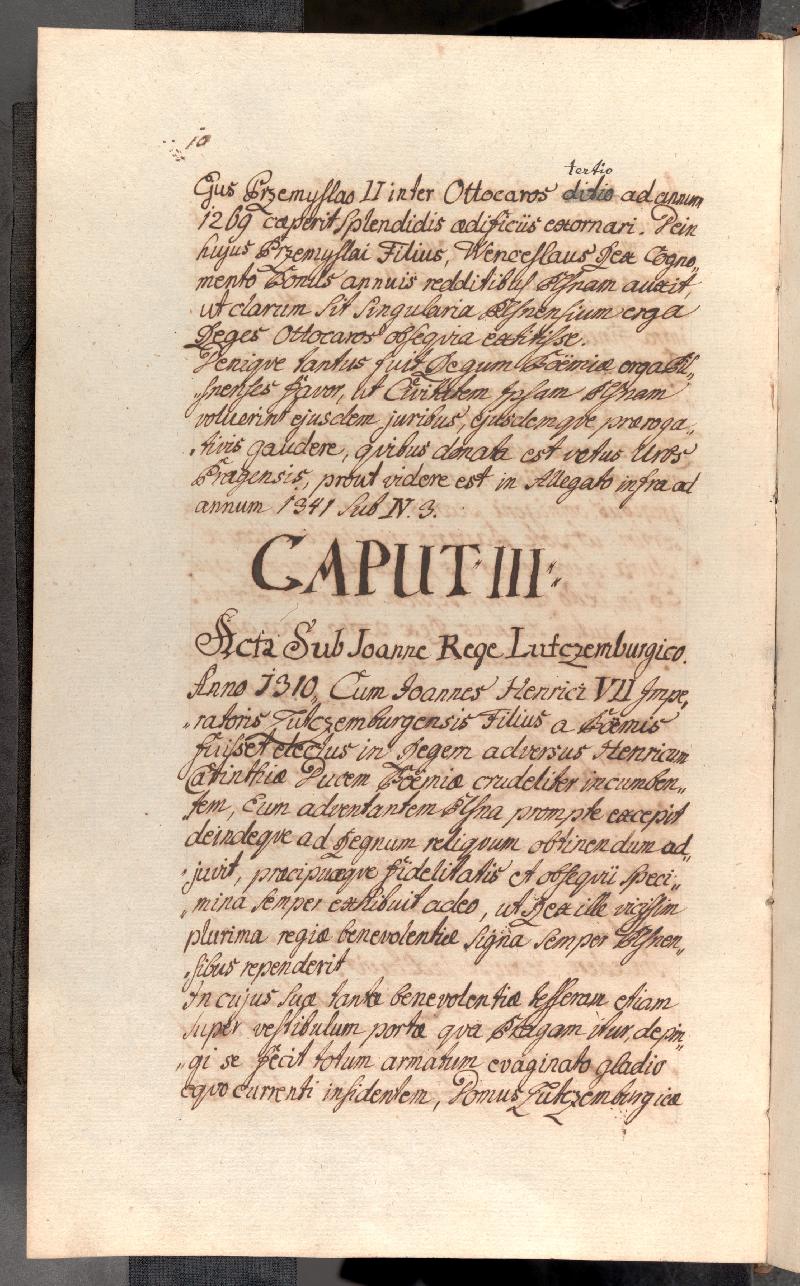 10
tertio
Ejus Przemyslao II inter Ottocaros dicto ad annum
1269 caeperit splendidis aedificiis exornari. Dein
hujus Przemyslai Filius, Wenceslaus Rex Cogno„
mento Bonus annuis redditibus Plsnam auxit,
ut clarum sit singularia Plsnensium erga
Reges Ottocaros obseqvia extitisse.
Deniqve tantus fuit Regum Boëmiae erga Pl„
„snenses favor, ut Civitatem ipsam Plsnam
voluerint ejusdem juribus, ejusdemqve praeroga„
„tivis gaudere, qvibus donata est vetus Urbs
Pragensis, prout videre est in Allegato infra ad
annum 1341 sub N. 3.
CAPUT III
Acta Sub Joanne Rege Lutczemburgico.
Anno 1310, Cum Joannes Henrici VII Impe„
„ratoris Lutczemburgensis Filius a Boëmis
fuisset electus in Regem adversus Henricum
Carinthiae Ducem Boëmiae crudeliter incumben„
„tem, Eum adventantem Plsna prompte excepit
deindeqve ad Regnum reliqvum obtinendum ad„
„juvit, praecipuaqve fidelitatis et obseqvii speci„
„mina semper exhibuit adeo, ut Rex ille vicissim
plurima regiae benevolentiae signa semper Plsnen„
„sibus rependerit
In cujus suae tantae benevolentiae tesseram etiam
super vestibulum portae qva Pragam itur, depin„
„gi se fecit totum armatum evaginato gladio
eqvo currenti insidentem, Domus Lutczemburgicae